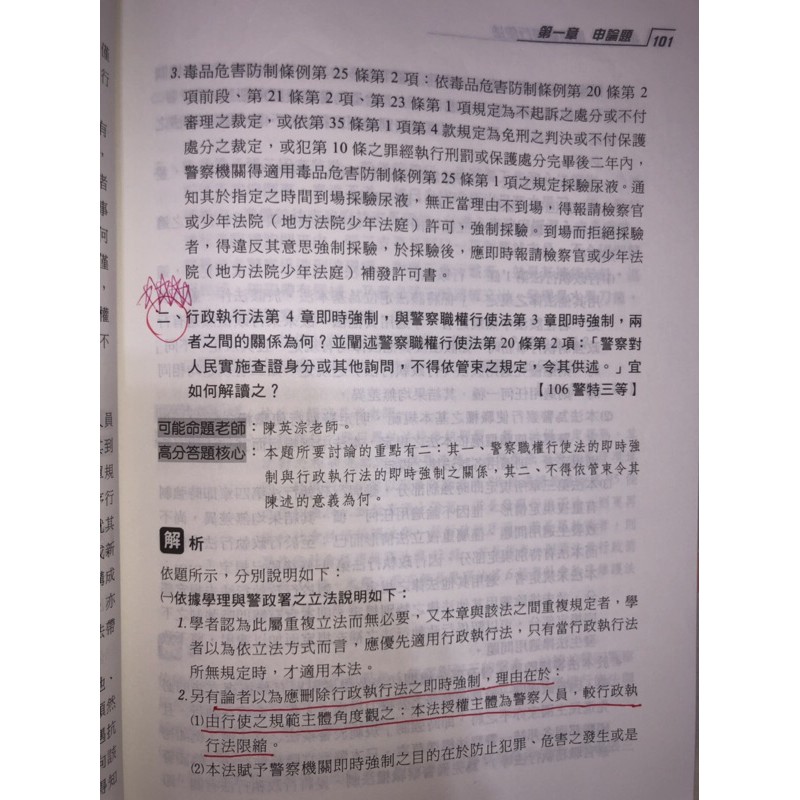 第一章　申論題　101
3.毒品危害防制條例第 25 條第 2 項：依毒品危害防制條例第 20 條第 2
項前段、第 21 條第 2 項、第 23 條第 1 項規定為不起訴之處分或不付
審理之裁定，或依第 35 條第 1 項第 4 款規定為免刑之判決或不付保護
處分之裁定，或犯第 10 條之罪經執行刑罰或保護處分完畢後二年內，
警察機關得適用毒品危害防制條例第 25 條第 1 項之規定採驗尿液。通
知其於指定之時間到場採驗尿液，無正當理由不到場，得報請檢察官
或少年法院（地方法院少年法庭）許可，強制採驗。到場而拒絕採驗
者，得違反其意思強制採驗，於採驗後，應即時報請檢察官或少年法
院（地方法院少年法庭）補發許可書。
二、行政執行法第 4 章即時強制，與警察職權行使法第 3 章即時強制，兩
者之間的關係為何？並闡述警察職權行使法第 20 條第 2 項：「警察對
人民實施查證身分或其他詢問，不得依管束之規定，令其供述。」宜
如何解讀之？【106 警特三等】
可能命題老師：陳英淙老師。
高分答題核心：本題所要討論的重點有二：其一、警察職權行使法的即時強
制與行政執行法的即時強制之關係，其二、不得依管束令其
陳述的意義為何。
解析
依題所示，分別說明如下：
㈠依據學理與警政署之立法說明如下：
1.學者認為此屬重複立法而無必要，又本章與該法之間重複規定者，學
者以為依立法方式而言，應優先適用行政執行法，只有當行政執行法
所無規定時，才適用本法。
2.另有論者以為應刪除行政執行法之即時強制，理由在於：
⑴由行使之規範主體角度觀之：本法授權主體為警察人員，較行政執
行法限縮。
⑵本法賦予警察機關即時強制之目的在於防止犯罪、危害之發生或是